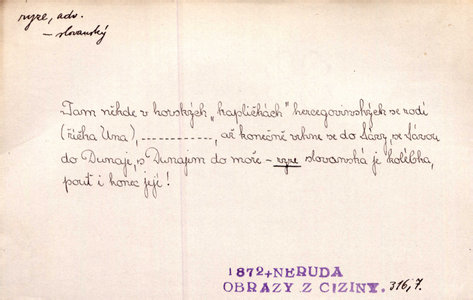 ryze, adv.
– slovanský
Tam někde v horských „kapličkách" hercegovinských se rodí
(říčka Una), ..............., až konečně vrhne se do Sávy, se Sávou
do Dunaje, s Dunajem do moře – ryze slovanská je kolébka,
pouť i konec její!
1872+NERUDA
OBRAZY Z CIZINY. 316,7.